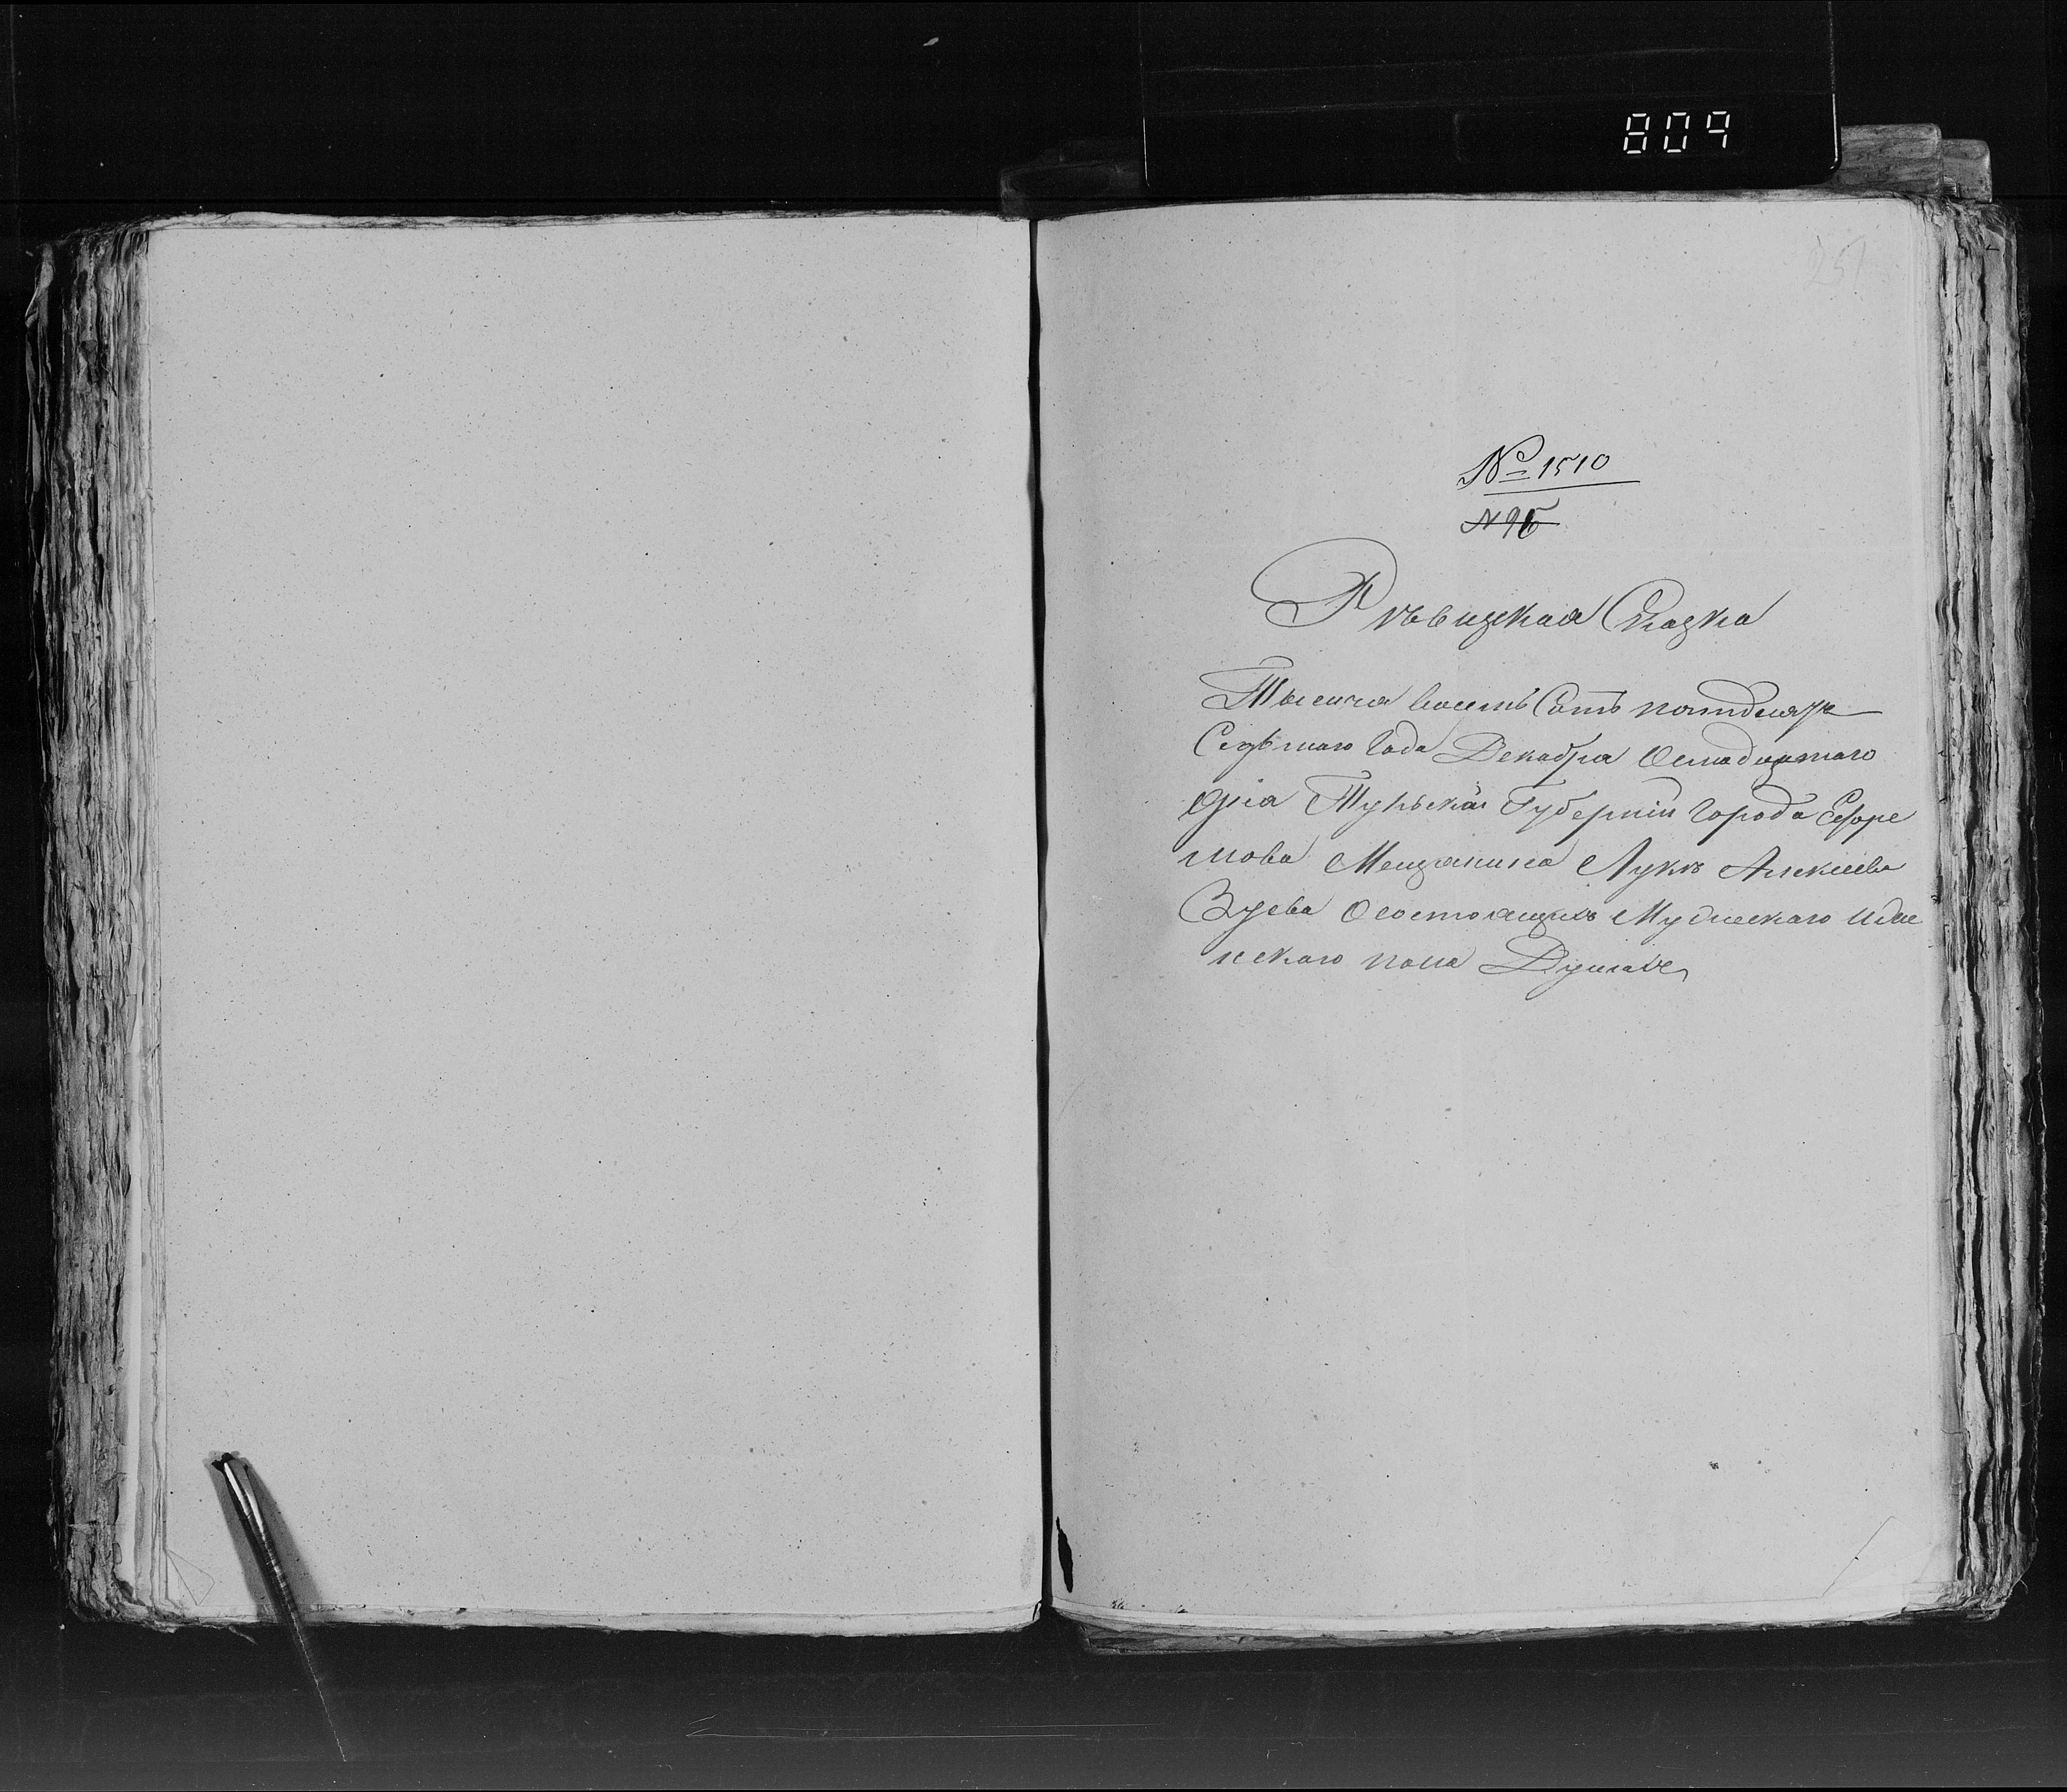 809
251
№ 1510
N 96
Ревизкая Сказка
Тысича восемь Сотъ пятдеся
Седьмаго Года Декабря Осмадцатаго
дня Тульскай Губернiи Города Ефре
мова Мещанина Луки Алексеева
Зуева Осостоящихъ Мужескаго иже
нскаго пола Душахъ